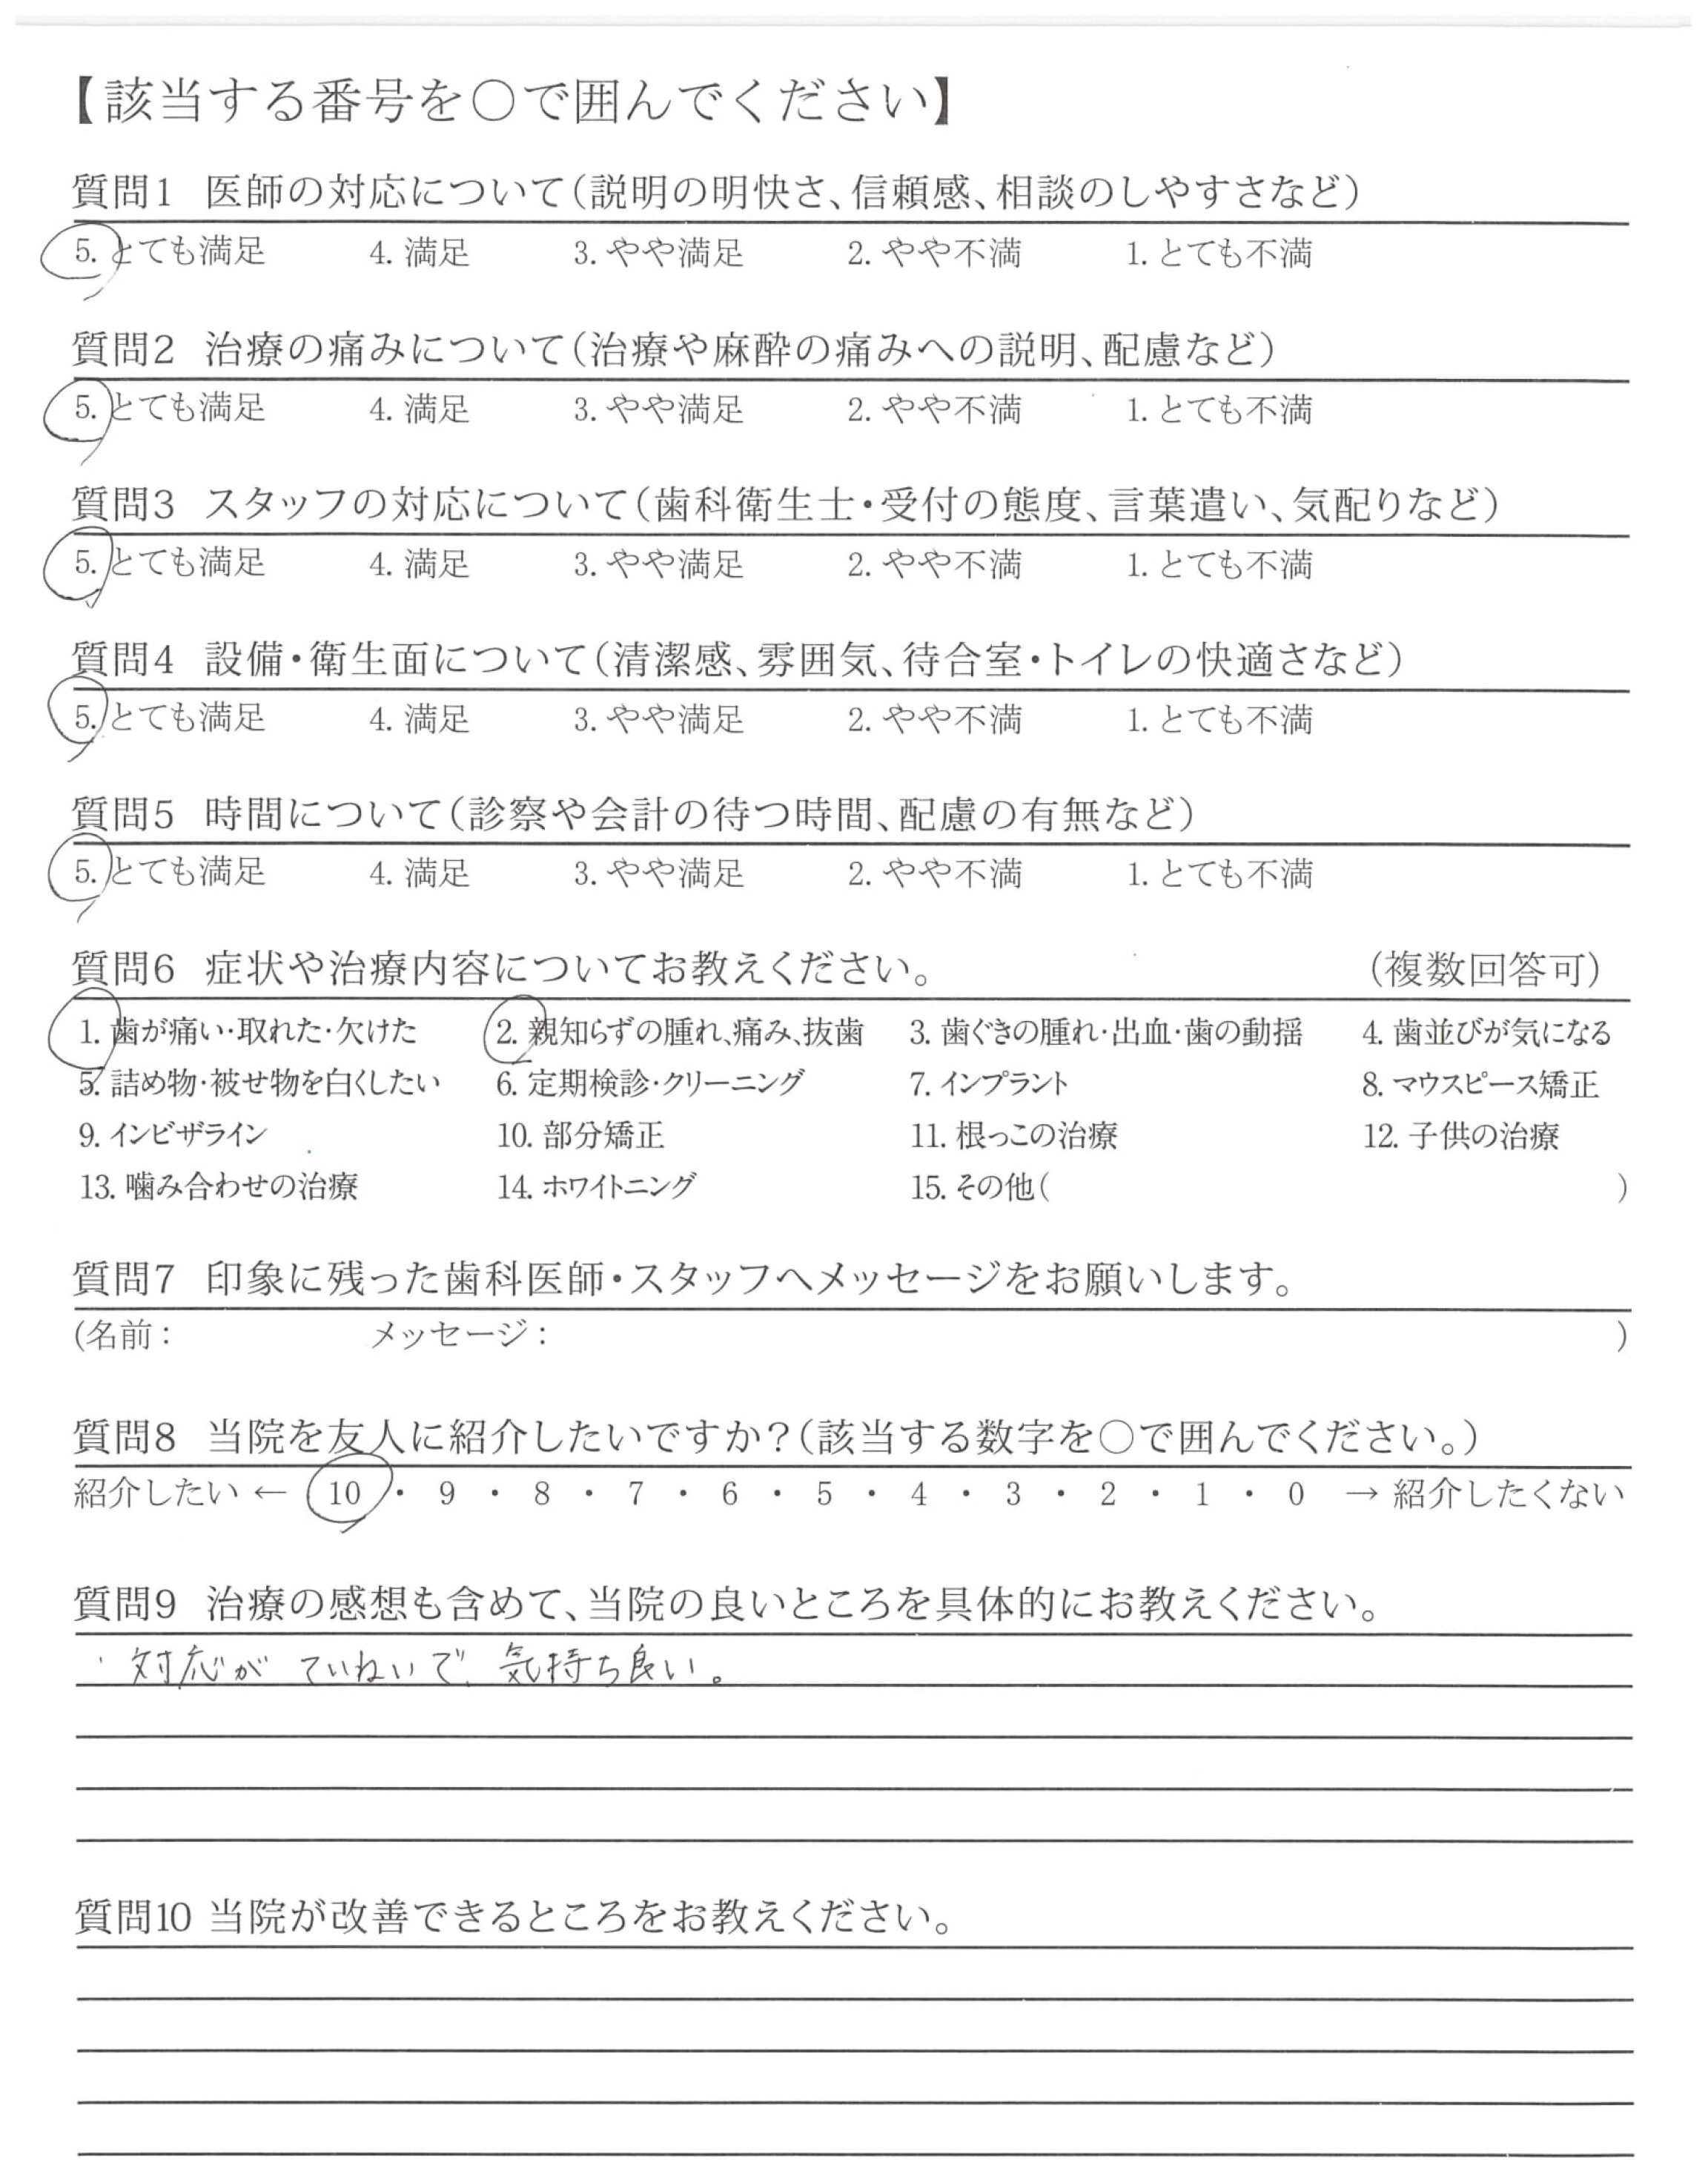 【該当する番号を○で囲んでください】
質問1 医師の対応について(説明の明快さ、信頼感、相談のしやすさなど)
5. とても満足 4. 満足 3. やや満足 2. やや不満 1. とても不満
質問2 治療の痛みについて(治療や麻酔の痛みへの説明、配慮など)
5. とても満足 4. 満足 3. やや満足 2. やや不満 1. とても不満
質問3 スタッフの対応について(歯科衛生士・受付の態度、言葉遣い、気配りなど)
5. とても満足 4. 満足 3. やや満足 2. やや不満 1. とても不満
質問4 設備・衛生面について(清潔感、雰囲気、待合室・トイレの快適さなど)
5. とても満足 4. 満足 3. やや満足 2. やや不満 1. とても不満
質問5 時間について(診察や会計の待つ時間、配慮の有無など)
5. とても満足 4. 満足 3. やや満足 2. やや不満 1. とても不満
質問6 症状や治療内容についてお教えください。 (複数回答可)
1. 歯が痛い・取れた・欠けた 2. 親知らずの腫れ、痛み、抜歯 3. 歯ぐきの腫れ・出血・歯の動揺 4. 歯並びが気になる
5. 詰め物・被せ物を白くしたい 6. 定期検診・クリーニング 7. インプラント 8. マウスピース矯正
9. インビザライン 10. 部分矯正 11. 根っこの治療 12. 子供の治療
13. 噛み合わせの治療 14. ホワイトニング 15. その他( )
質問7 印象に残った歯科医師・スタッフへメッセージをお願いします。
(名前: メッセージ: )
質問8 当院を友人に紹介したいですか?(該当する数字を○で囲んでください。)
紹介したい ← 10 ・ 9 ・ 8 ・ 7 ・ 6 ・ 5 ・ 4 ・ 3 ・ 2 ・ 1 ・ 0 → 紹介したくない
質問9 治療の感想も含めて、当院の良いところを具体的にお教えください。
・対応が ていねいで、気持ち良い。
質問10 当院が改善できるところをお教えください。